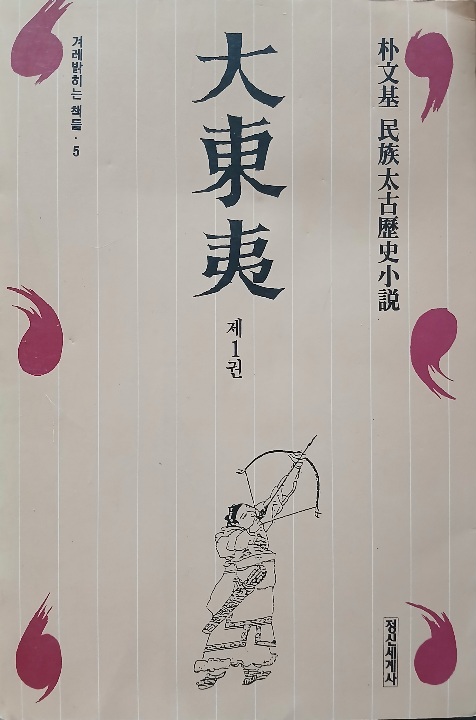 朴文基 民族太古歷史小説
大東夷
제1권
겨레밝히는 책들·5
정신세계사